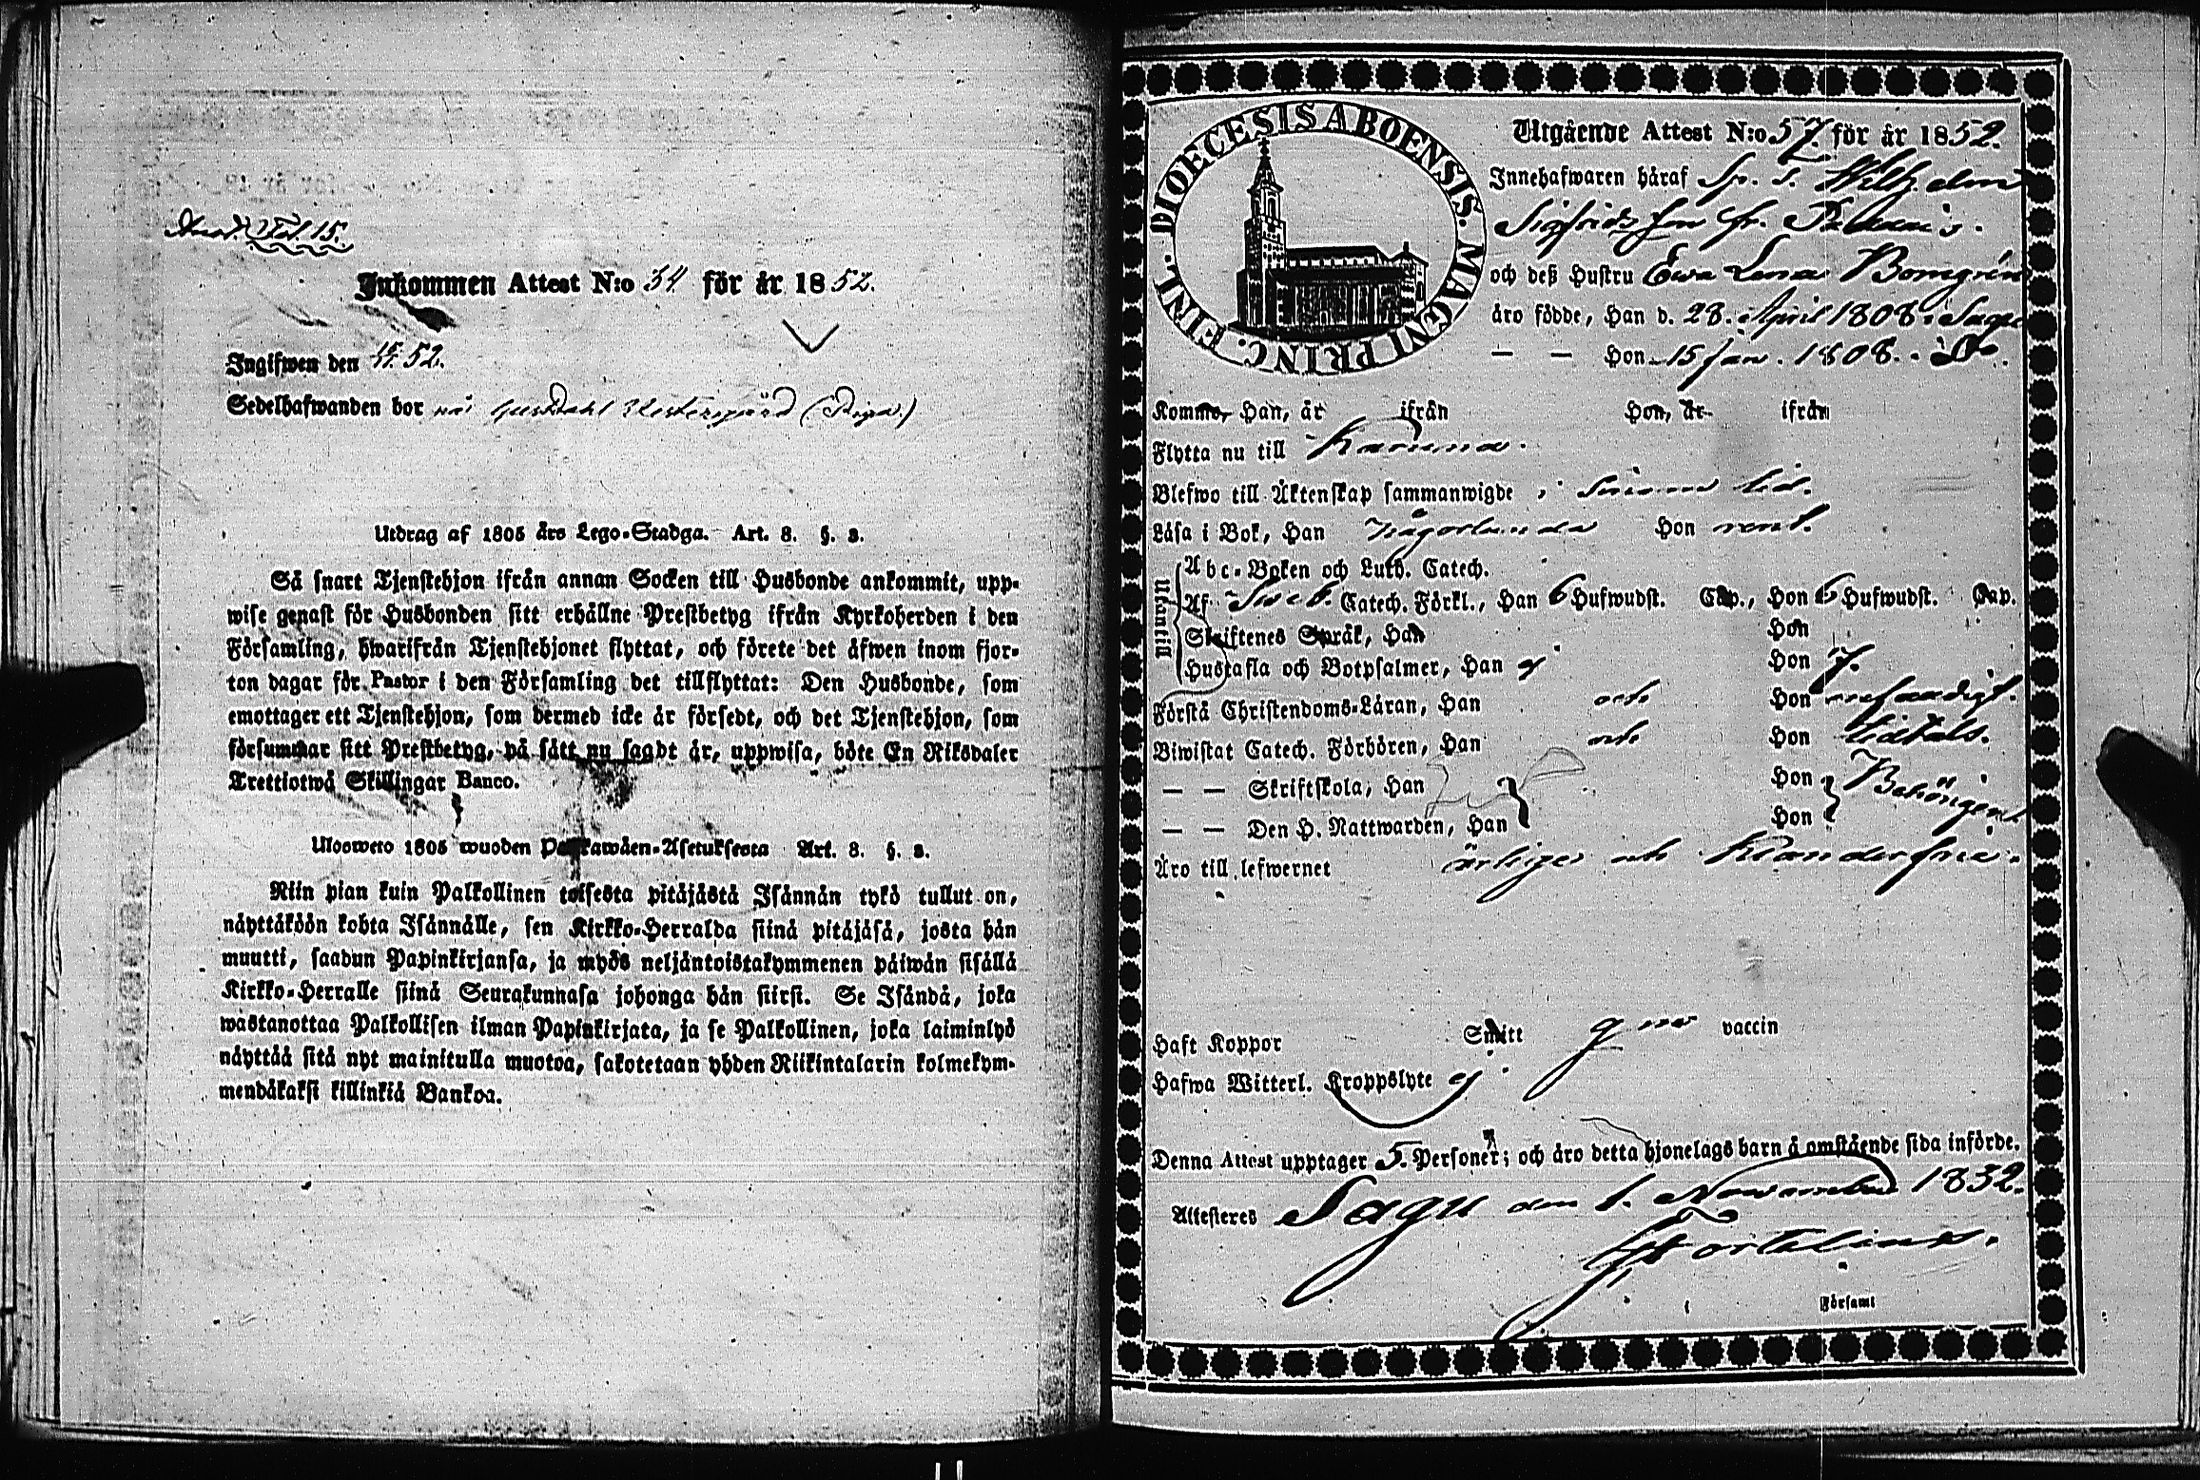 Fol. 15.
Inkommen Attest N:o 34 för år 1852.
Ingifwen den 52.
Sedelhafwanden bor
Utdrag af 1805 års Lego-Stadga. Art. 8. §. 3.
Så snart Tjenstehjon ifrån annan Socken till Husbonde ankommit, upp-
wise genast för Husbonden sitt erhållne Prestbetyg ifrån Kyrkoherden i den
Församling, hwarifrån Tjenstehjonet flyttat, och förete det äfwen inom fjor-
ton dagar för Pastor i den Församling det tillflyttat: Den Husbonde, som
emottager ett Tjenstehjon, som dermed icke är försedt, och det Tjenstehjon, som
försummar sitt Prestbetyg, på sätt nu sagdt är, uppwisa, böte En Riksdaler
Trettiotwå Skillingar Banco.
Ulosweto 1805 wuoden Palkawäen-Asetuksesta Art. 8. §. 3.
Niin pian kuin Palkollinen toisesta pitäjästä Isännän tykö tullut on,
näyttäköön kohta Isännälle, sen Kirkko-Herralda siinä pitäjäsä, josta hän
muutti, saadun Papinkirjansa, ja myös neljäntoistakymmenen päiwän sisällä
Kirkko-Herralle siinä Seurakunnasa johonga hän siirsi. Se Isändä, joka
wastanottaa Palkollisen ilman Papinkirjata, ja se Palkollinen, joka laiminlyö
näyttää sitä nyt mainitulla muotoa, sakotetaan yhden Riikintalarin kolmekym-
mendäkaksi killinkiä Bankoa.
DIOECESIS ABOENSIS. MAGNI PRINC. FINL.
Utgående Attest N:o 57. för år 1852.
Innehafwaren häraf
Sigfrids
och deß Hustru Ewa Lena Bomgrén
äro födde, Han d. 28. April 1808 i Sagu
— — Hon 15 Jan. 1808. Do.
Kommo, Han, år ifrån Hon, år ifrån
Flytta nu till Karuna.
Blefwo till Äktenskap sammanwigde i
Läsa i Bok, Han någorlunda Hon rent.
Utantill
Abc-Boken och Luth. Catech.
Af Sweb. Catech. Förkl., Han 6 Hufwudst. Cap., Hon 6 Hufwudst. Cap.
Skriftenes Språk, Han Hon
Hustafla och Botpsalmer, Han ej Hon 7.
Förstå Christendoms-Läran, Han och Hon enfaldigt.
Biwistat Catech. Förhören, Han och Hon tidtals.
— — Skriftskola, Han Hon Behörigen
— — Den H. Nattwarden, Han Hon
Äro till lefwernet ärlige och klanderfria.
Haft Koppor Smitt vaccin
Hafwa Witterl. Kroppslyte ej
Denna Attest upptager 5. Personer; och äro detta hjonelags barn å omstående sida införde.
Attesteres Sagu den 1. November 1852.
Församl